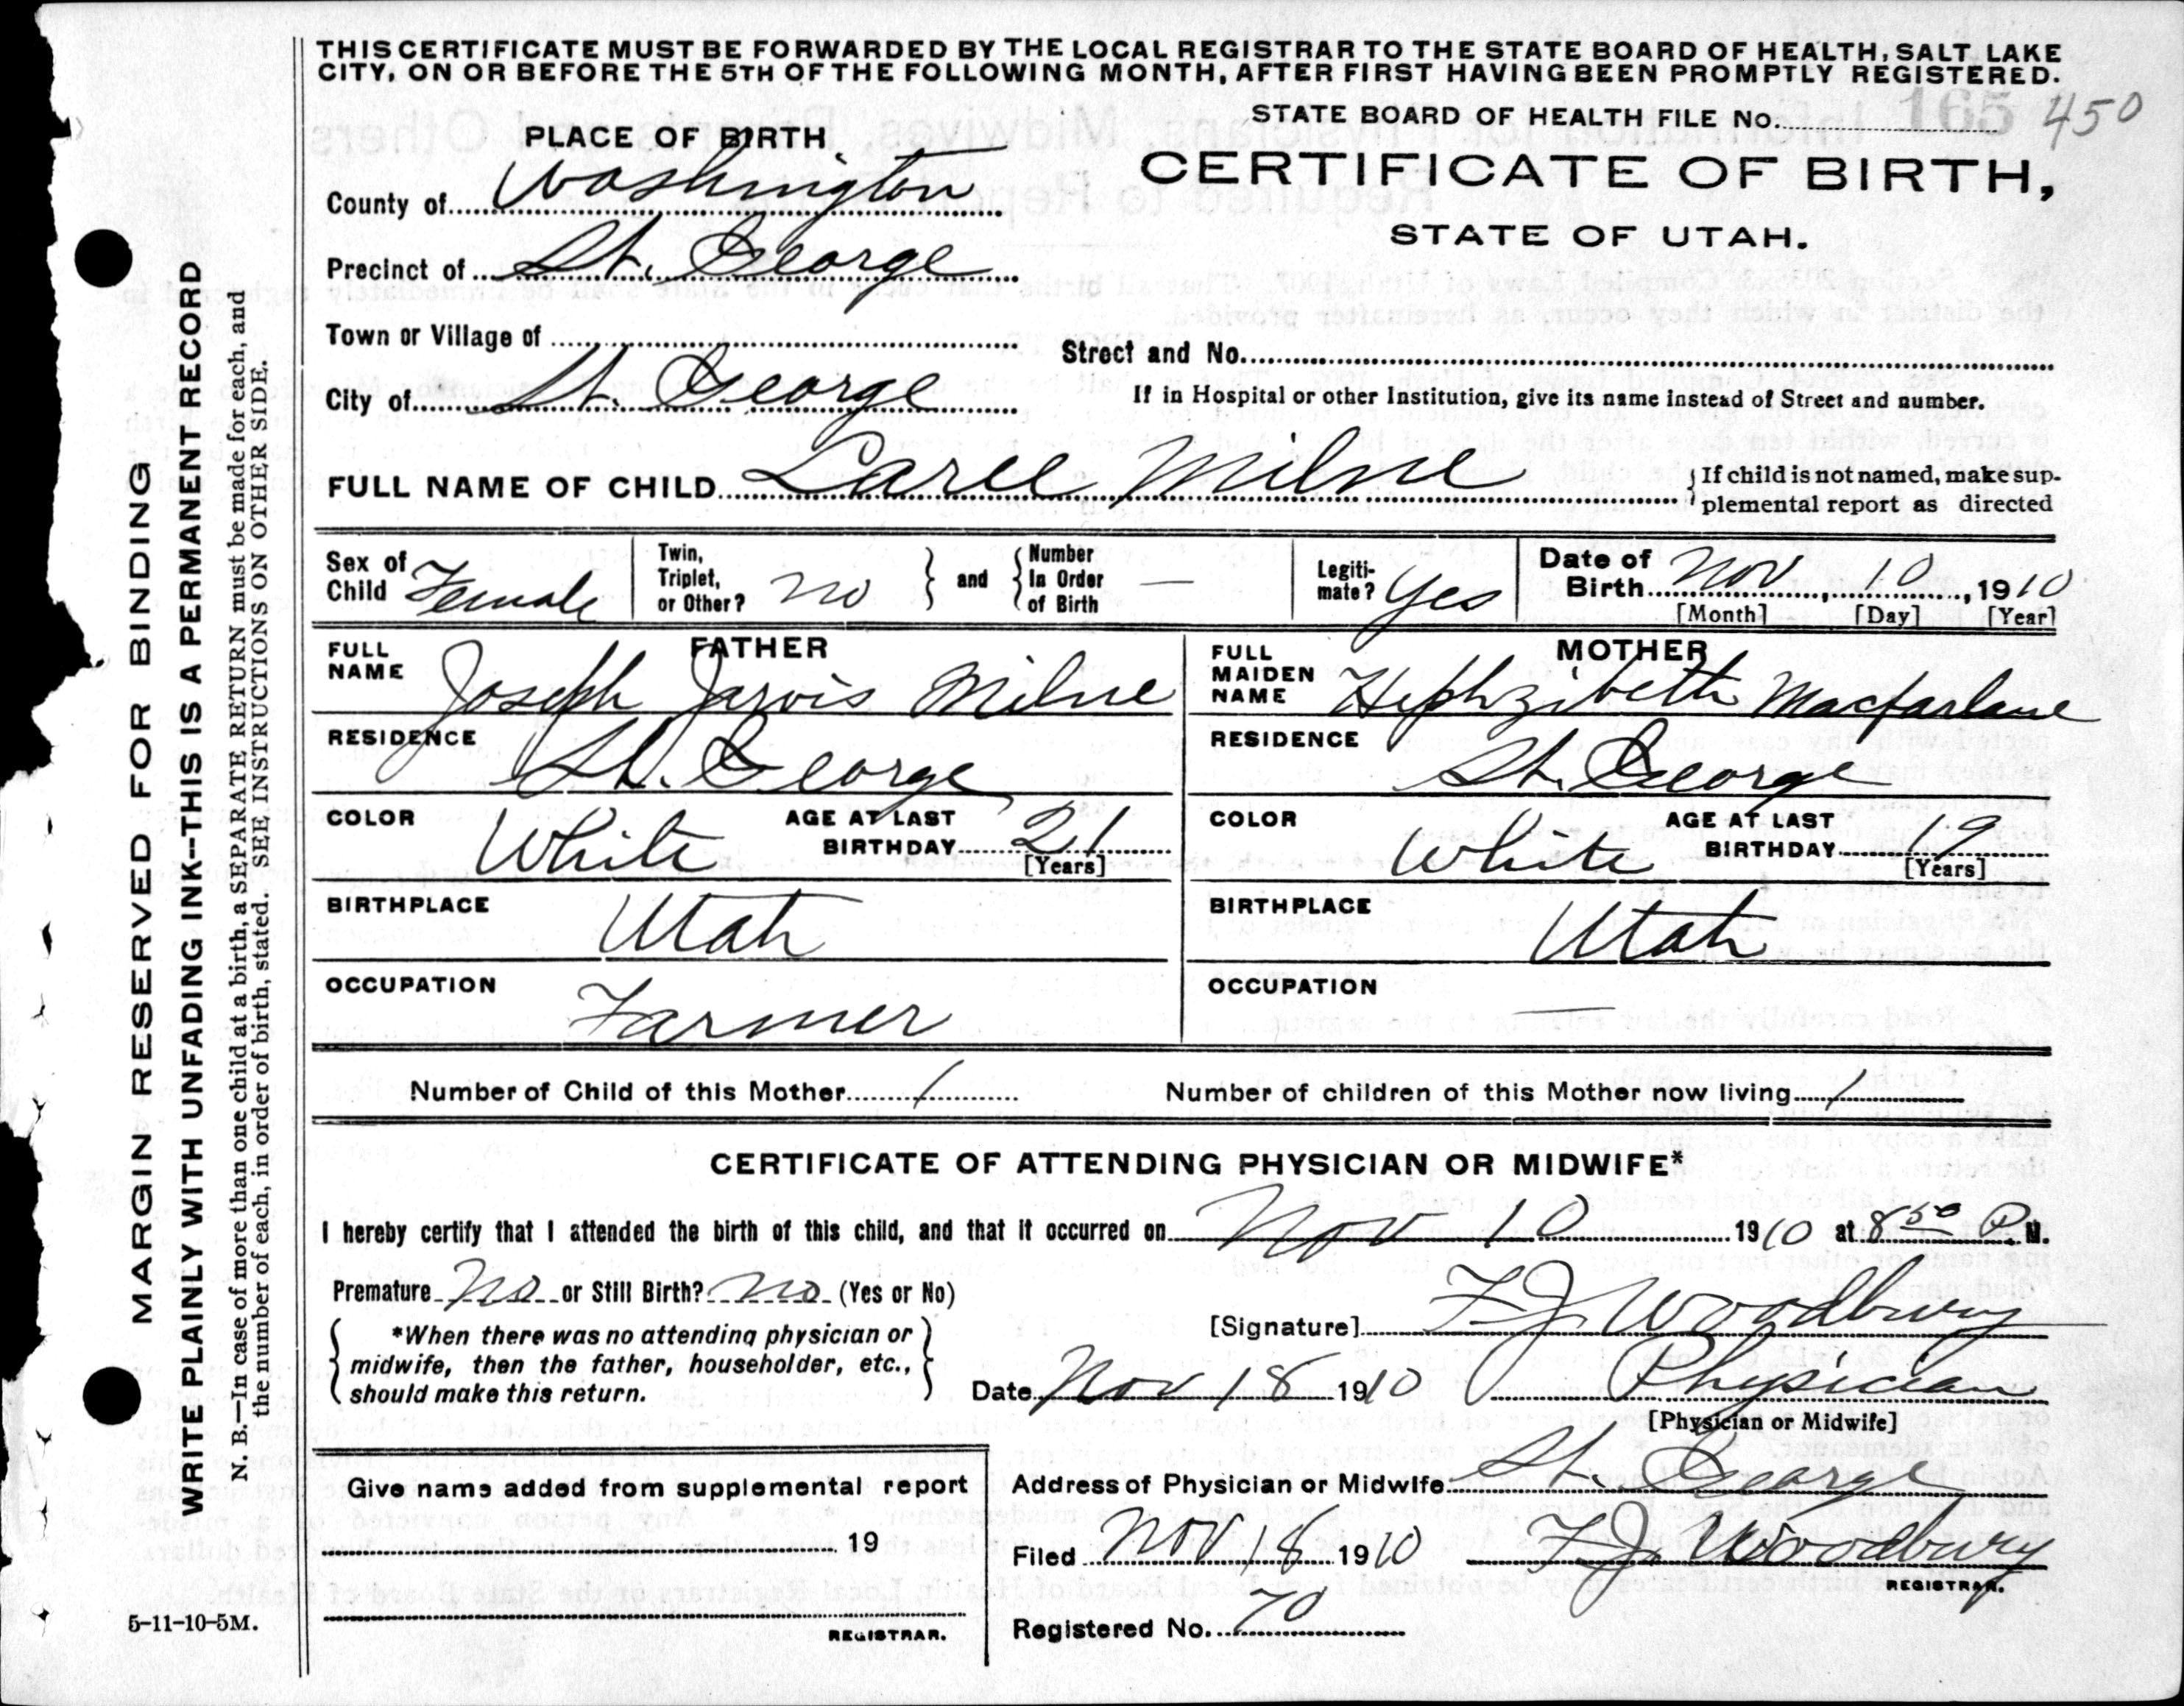 THIS CERTIFICATE MUST BE FORWARDED BY THE LOCAL REGISTRAR TO THE STATE BOARD OF HEALTH, SALT LAKE
CITY, ON OR BEFORE THE 5TH OF THE FOLLOWING MONTH, AFTER FIRST HAVING BEEN PROMPTLY REGISTERED.
STATE BOARD OF HEALTH FILE No. 165 450
PLACE OF BIRTH
CERTIFICATE OF BIRTH,
STATE OF UTAH.
County of Washington
Precinct of St. George
Town or Village of
Street and No.
City of St. George
If in Hospital or other Institution, give its name instead of Street and number.
FULL NAME OF CHILD Laree Milne
If child is not named, make sup-
plemental report as directed
Sex of Child Female
Twin, Triplet, or Other? No and Number In Order of Birth —
Legiti-mate? Yes
Date of Birth Nov 10, 1910
[Month] [Day] [Year]
FATHER
FULL NAME Joseph Jarvis Milne
RESIDENCE St. George
COLOR White AGE AT LAST BIRTHDAY 21 [Years]
BIRTHPLACE Utah
OCCUPATION Farmer
MOTHER
FULL MAIDEN NAME Hephzibeth Macfarlane
RESIDENCE St. George
COLOR White AGE AT LAST BIRTHDAY 19 [Years]
BIRTHPLACE Utah
OCCUPATION —
Number of Child of this Mother 1 Number of children of this Mother now living 1
CERTIFICATE OF ATTENDING PHYSICIAN OR MIDWIFE*
I hereby certify that I attended the birth of this child, and that it occurred on Nov 10 1910 at 8 50 P. M.
Premature No or Still Birth? No (Yes or No)
*When there was no attending physician or
midwife, then the father, householder, etc.,
should make this return.
[Signature] F J Woodbury
Date Nov 18 1910 Physician
[Physician or Midwife]
Give name added from supplemental report
19
REGISTRAR.
Address of Physician or Midwife St. George
Filed Nov 18 1910 F J Woodbury
REGISTRAR.
Registered No. 70
5-11-10-5M.
MARGIN RESERVED FOR BINDING
WRITE PLAINLY WITH UNFADING INK--THIS IS A PERMANENT RECORD
N. B.—In case of more than one child at a birth, a SEPARATE RETURN must be made for each, and
the number of each, in order of birth, stated. SEE INSTRUCTIONS ON OTHER SIDE.